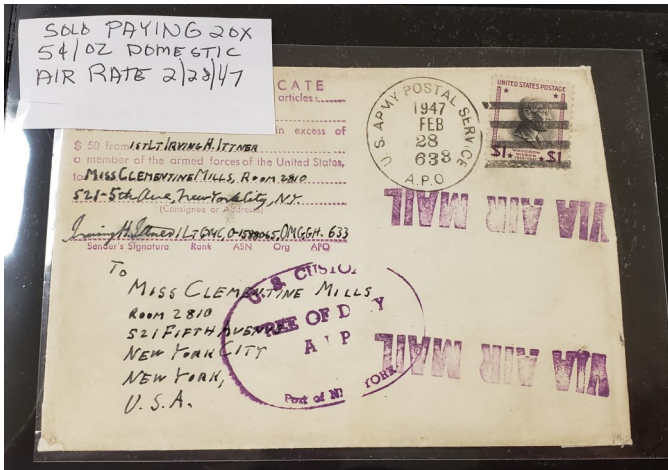 SOLO PAYING 20X
5¢/OZ DOMESTIC
AIR RATE 2/28/47
CATE
articles:
in excess of
$ 50 from 1ST LT IRVING H. ITTNER
a member of the armed forces of the United States,
to MISS CLEMENTINE MILLS, ROOM 2810
521-5th Ave, New York City, N.Y.
(Consignee or Address)
Irving H. Ittner 1 Lt QMC, O-1589065, OMGGH. 633
Sender's Signature Rank ASN Org APO
U.S. ARMY POSTAL SERVICE
1947
FEB
28
633
A.P.O.
UNITED STATES POSTAGE
$1 WOODROW WILSON $1
VIA AIR MAIL
TO
MISS CLEMENTINE MILLS
ROOM 2810
521 FIFTH AVENUE
NEW YORK CITY
NEW YORK,
U.S.A.
U.S. CUSTO
FREE OF D Y
A P
Port of N YORK
VIA AIR MAIL